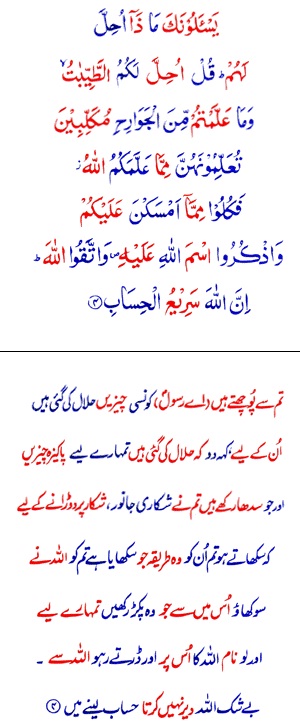 يَسْـَٔلُوْنَكَ مَا ذَآ اُحِلَّ
لَهُمْ ؕ قُلْ اُحِلَّ لَكُمُ الطَّيِّبٰتُ ۙ
وَمَا عَلَّمْتُمْ مِّنَ الْجَوَارِحِ مُكَلِّبِيْنَ
تُعَلِّمُوْنَهُنَّ مِمَّا عَلَّمَكُمُ اللّٰهُ ؗ
فَكُلُوْا مِمَّآ اَمْسَكْنَ عَلَيْكُمْ
وَاذْكُرُوا اسْمَ اللّٰهِ عَلَيْهِ ۪ وَاتَّقُوا اللّٰهَ ؕ
اِنَّ اللّٰهَ سَرِيْعُ الْحِسَابِ ﴿۴﴾
تم سے پُوچھتے ہیں (اے رسولؐ) کونسی چیزیں حلال کی گئی ہیں
اُن کے لیے، کہہ دو کہ حلال کی گئی ہیں تمہارے لیے پاکیزہ چیزیں
اور جو سدھا رکھے ہیں تم نے شکاری جانور، شکار پر دوڑانے کے لیے
کہ سکھاتے ہو تم اُن کو وہ طریقہ جو سکھایا ہے تم کو اللہ نے
سو کھاؤ اُس میں سے جو وہ پکڑ رکھیں تمہارے لیے
اور لو نام اللہ کا اُس پر اور ڈرتے رہو اللہ سے ۔
بے شک اللہ دیر نہیں کرتا حساب لینے میں ﴿۴﴾